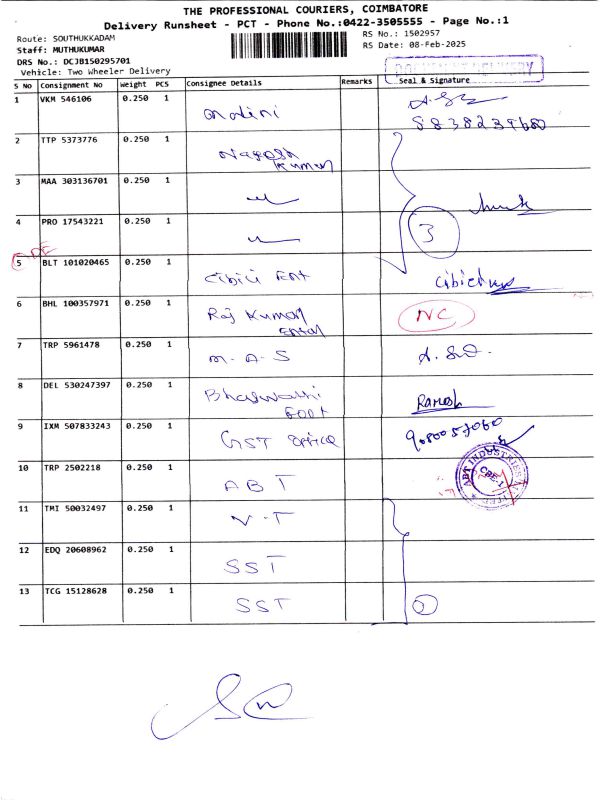 THE PROFESSIONAL COURIERS, COIMBATORE
Delivery Runsheet - PCT - Phone No.:0422-3505555 - Page No.:1
Route: SOUTHUKKADAM
RS No.: 1502957
Staff: MUTHUKUMAR
RS Date: 08-Feb-2025
DRS No.: DCJB150295701
Vehicle: Two Wheeler Delivery
DELIVERY
S No Consignment No Weight PCS Consignee Details Remarks Seal & Signature
1 VKM 546106 0.250 1
2 TTP 5373776 0.250 1 Nagesh Kumar
3 MAA 303136701 0.250 1
4 PRO 17543221 0.250 1 3
5 BLT 101020465 0.250 1
6 BHL 100357971 0.250 1 Raj Kumar NC
7 TRP 5961478 0.250 1 M.A.S
8 DEL 530247397 0.250 1 Ramesh
9 IXM 507833243 0.250 1 GST office
10 TRP 2502218 0.250 1 ABT ABT INDUSTRIES CBE-1
11 TMI 50032497 0.250 1 N.T
12 EDQ 20608962 0.250 1 SST
13 TCG 15128628 0.250 1 SST